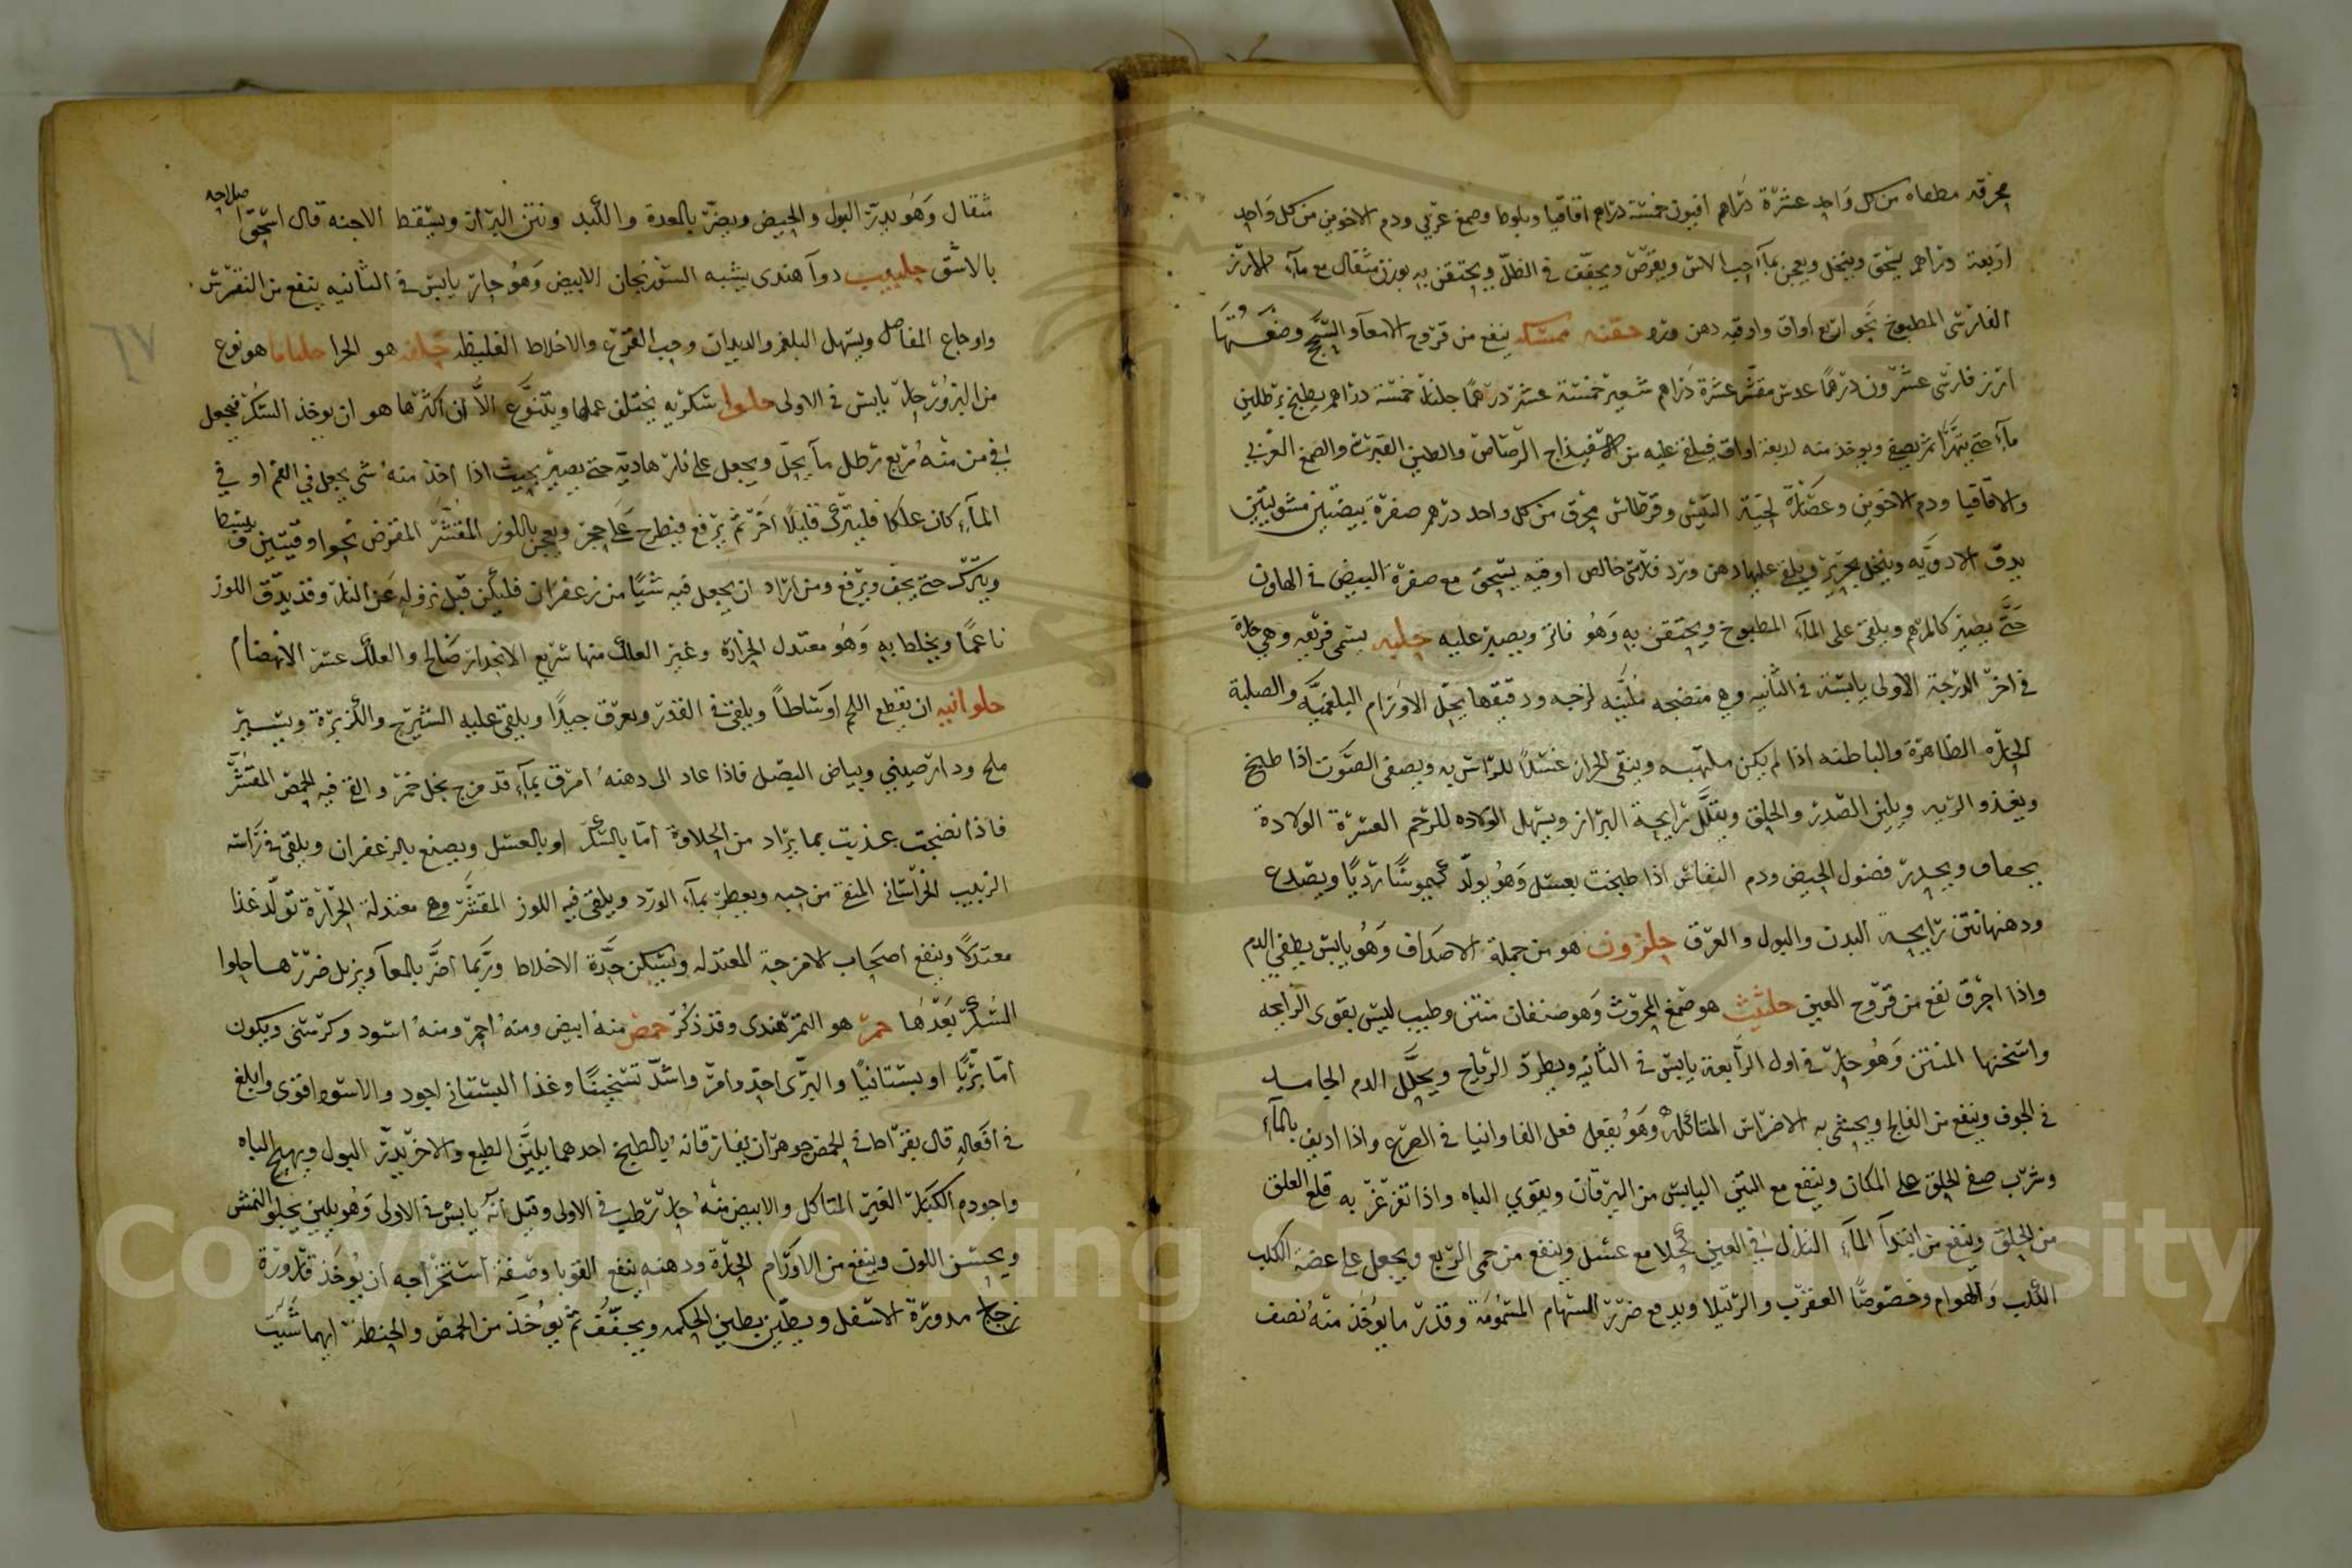 محرقه مطفاه من كل واحد عشرة دراهم افيون خمسة دراهم اقاقيا وبلوط وصمغ عربي ودم الاخوين من كل واحد
اربعة دراهم يسحق وينخل ويعجن بماء حب الاس ويقرص ويجفف في الظل ويحتقن به بوزن مثقال مع ماء الارز
الفارسي المطبوخ نحو اربع اواق واوقيه دهن ورد حقنه ممسكه ينفع من قروح الامعاء والسحج وصفتها
ارز فارسي عشرون درهما عدس مقشر عشرة دراهم شعير خمسة عشر درهما جلنار خمسة دراهم يطبخ برطلين
ماء حتى يتهرا ثم يصفى ويوخذ منه اربعة اواق فيلقى عليه من اسفيداج الرصاص والطين القبرسي والصمغ العربي
والاقاقيا ودم الاخوين وعصارة لحية التيس وقرطاس محرق من كل واحد درهم صفرة بيضتين مشويتين
يدق الادويه وينخل بحرير ويلقى عليها دهن ورد خالص اوقيه يسحق مع صفرة البيض في الهاون
حتى يصير كالمرهم ويلقى على الماء المطبوخ ويحتقن به وهو فاتر ويصير عليه حلبه يسمى فريقه وهي حارة
في اخر الدرجة الاولى يابسة في الثانيه وهي منضجه ملينه لزجه ودقيقها يحلل الاورام البلغميه والصلبة
الحاره الظاهرة والباطنه اذا لم يكن ملتهبه وينقي الحزاز غسلا للراس به ويصفي الصوت اذا طبخ
ويغذو الريه ويلين الصدر والحلق ويقلل رايحة البراز ويسهل الولاده للرحم العسرة الولادة
بجفاف ويحدر فضول الحيض ودم النفاس اذا طبخت بعسل وهو يولد كيموسا رديا ويصدع
ودهنها نتن رايحة البدن والبول والعرق حلزون هو من جملة الاصداف وهو يابس يطفي الدم
واذا احرق نفع من قروح العين حلتيت هو صمغ المحروث وهو صنفان منتن وطيب ليس بقوى الرايحه
واسخنها المنتن وهو حار في اول الرابعة يابس في الثانيه ويطرد الرياح ويحلل الدم الجامد
في الجوف وينفع من الفالج ويحشى به الاضراس المتاكله وهو يفعل فعل الفاوانيا في الصرع واذا اديف بالماء
وشرب صفى الحلق على المكان وينفع مع التين اليابس من اليرقان ويقوي الباه واذا تغرغر به قلع العلق
من الحلق وينفع من ابتدا الماء النازل في العين كحلا مع عسل وينفع من حمى الربع ويجعل على عضة الكلب
الكلب والهوام وخصوصا العقرب والرتيلا ويدفع ضرر السهام المسمومة وقدر ما يوخذ منه نصف
مثقال وهو يدر البول والحيض ويضر بالمعدة والكبد ونتن البراز ويسقط الاجنه قال اسحق صلاحه
بالاشق حلبيب دوا هندى يشبه السورنجان الابيض وهو حار يابس في الثانيه ينفع من النقرس
٦٧
واوجاع المفاصل ويسهل البلغم والديدان وحب القرع والاخلاط الغليظه هو الحرا حلباما هو نوع
من البزور حار يابس في الاولى حلوا سكريه يختلف عملها ويتنوع الا ان اكثرها هو ان يوخذ السكر فيجعل
في من منه ربع رطل ما يحل ويجعل على نار هاديه حتى يصير بحيث اذا اخذ منه شي يجعل في الفم او في
الماء كان علكا فليترك قليلا اخر ثم يرفع فيطرح على حجر ويعجن باللوز المقشر المقرض نحو اوقيتين
ويترك حتى يجف ويرفع ومن اراد ان يجعل فيه شيا من زعفران فليكن قبل نزوله عن النار وقد يدق اللوز
ناعما ويخلط به وهو معتدل الحرارة وغير العلك منها سريع الانحدار صالح والعلك عسر الانهضام
حلوانيه ان يقطع اللحم اوساطا ويلقى في القدر ويعرق جيدا ويلقى عليه الشيرج والكزبرة ويسير
ملح ودارصيني وبياض البصل فاذا عاد الى دهنه امرق بماء قد مزج بخل خمر والقى فيه الحمص المقشر
فاذا نضجت عذيت بما يراد من الحلاوة اما بالسكر او بالعسل ويصبغ بالزعفران ويلقى في راسه
الزبيب الخراساني المنقى من حبه ويعطر بماء الورد ويلقى فيه اللوز المقشر وهي معتدلة الحرارة تولد غذا
معتدلا وينفع اصحاب الامزجة المعتدله ويسكن حدة الاخلاط وربما اضر بالمعا ويزيل ضررها حلوا
السكر بعدها حمر هو التمر هندى وقد ذكر حمص منه ابيض ومنه احمر ومنه اسود وكرسنى ويكون
اما بريا او بستانيا والبرى احد وامر واشد تسخينا وغذا البستاني اجود والاسود اقوى وابلغ
في افعاله قال بقراط في الحمص جوهران يفارقانه بالطبخ احدهما يلين الطبع والاخر يدر البول ويهيج الباه
واجوده الكبار الغير المتاكل والابيض منه حار رطب في الاولى وقيل انه يابس في الاولى وهو يلين يجلو النمش
ويحسن اللون وينفع من الاورام الحارة ودهنه ينفع القوبا وصفة استخراجه ان يوخذ قارورة
زجاج مدورة الاسفل ويطين بطين الحكمه ويجفف ثم يوخذ من الحمص والحنطة ايهما شيت
Copyright © King Saud University